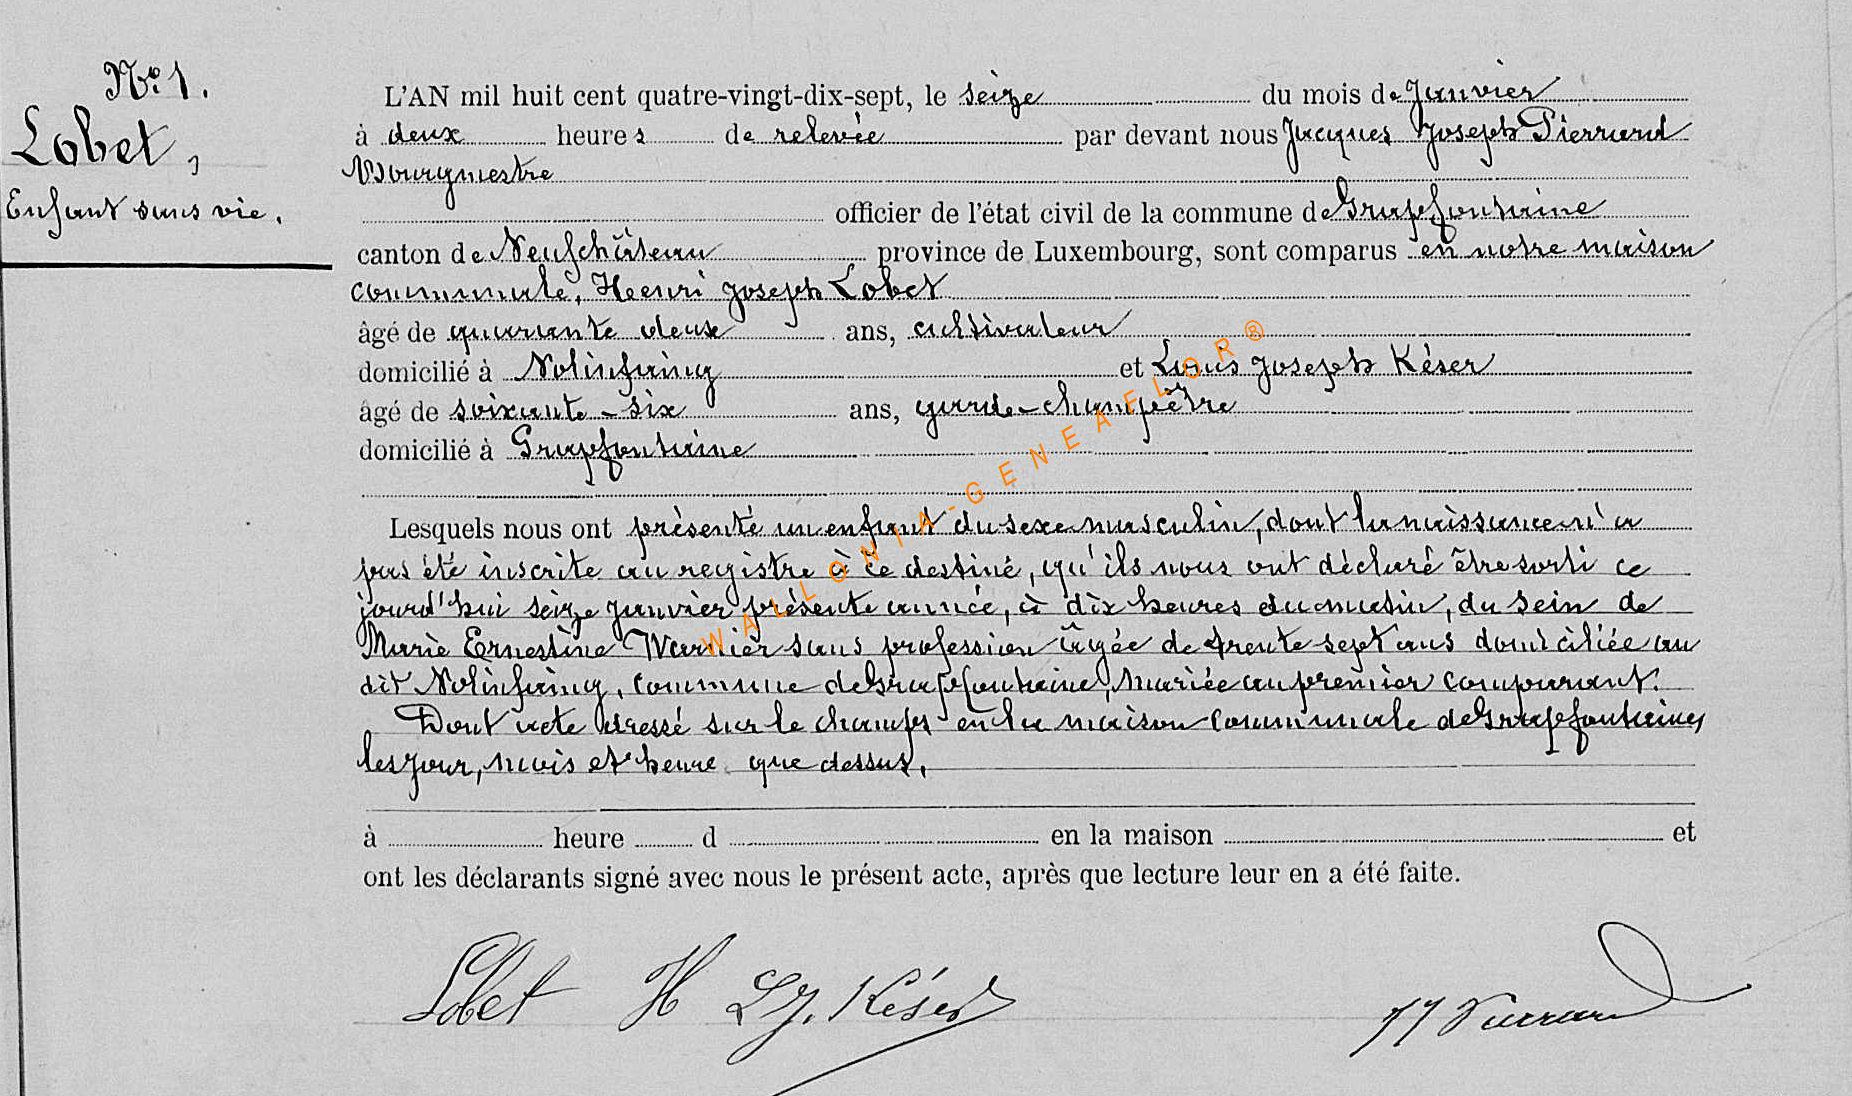 No. 1.
Lobet,
Enfant sans vie.
L'AN mil huit cent quatre-vingt-dix-sept, le seize du mois de Janvier
à deux heures de relevée par devant nous Jacques Joseph Pierrard
Bourgmestre
officier de l'état civil de la commune de Grapfontaine
canton de Neufchâteau province de Luxembourg, sont comparus en notre maison
communale, Henri Joseph Lobet
âgé de quarante deux ans, cultivateur
domicilié à Nolinfaing et Louis Joseph Késer
âgé de soixante-six ans, garde-champêtre
domicilié à Grapfontaine
Lesquels nous ont présenté un enfant du sexe masculin, dont la naissance n'a
pas été inscrite au registre à ce destiné, qu'ils nous ont déclaré être sorti ce
jourd'hui seize janvier présente année, à dix heures du matin, du sein de
Marie Ernestine Warnier sans profession âgée de trente sept ans domiciliée au
dit Nolinfaing, commune de Grapfontaine, mariée au premier comparant.
Dont acte dressé sur le champ en la maison communale de Grapfontaine,
les jour, mois et heure que dessus.
à heure d en la maison et
ont les déclarants signé avec nous le présent acte, après que lecture leur en a été faite.
Lobet H LJ. Késer JJ Pierrard
WALLONIA-GENEAFLOR®